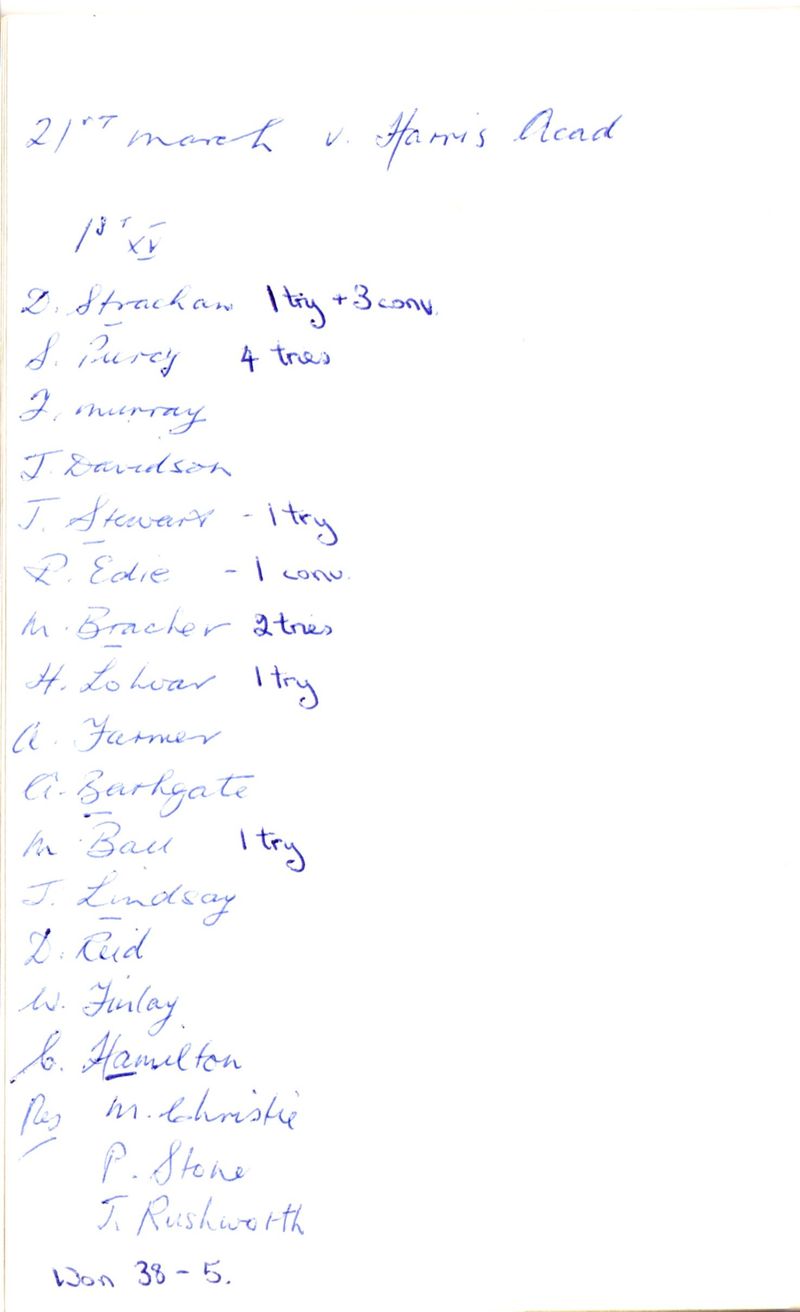 21ST March v. Harris Acad
1ST XV
D. Strachan 1 try + 3 conv.
S. Purcy 4 tries
J. Murray
J. Davidson
J. Stewart - 1 try
P. Edie - 1 conv.
M. Bracher 2 tries
H. Lohoar 1 try
A. Farmer
A. Bathgate
M Ball 1 try
J. Lindsay
D. Reid
W. Finlay
C. Hamilton
Res M. Christie
P. Stone
J. Rushworth
Won 38 - 5.